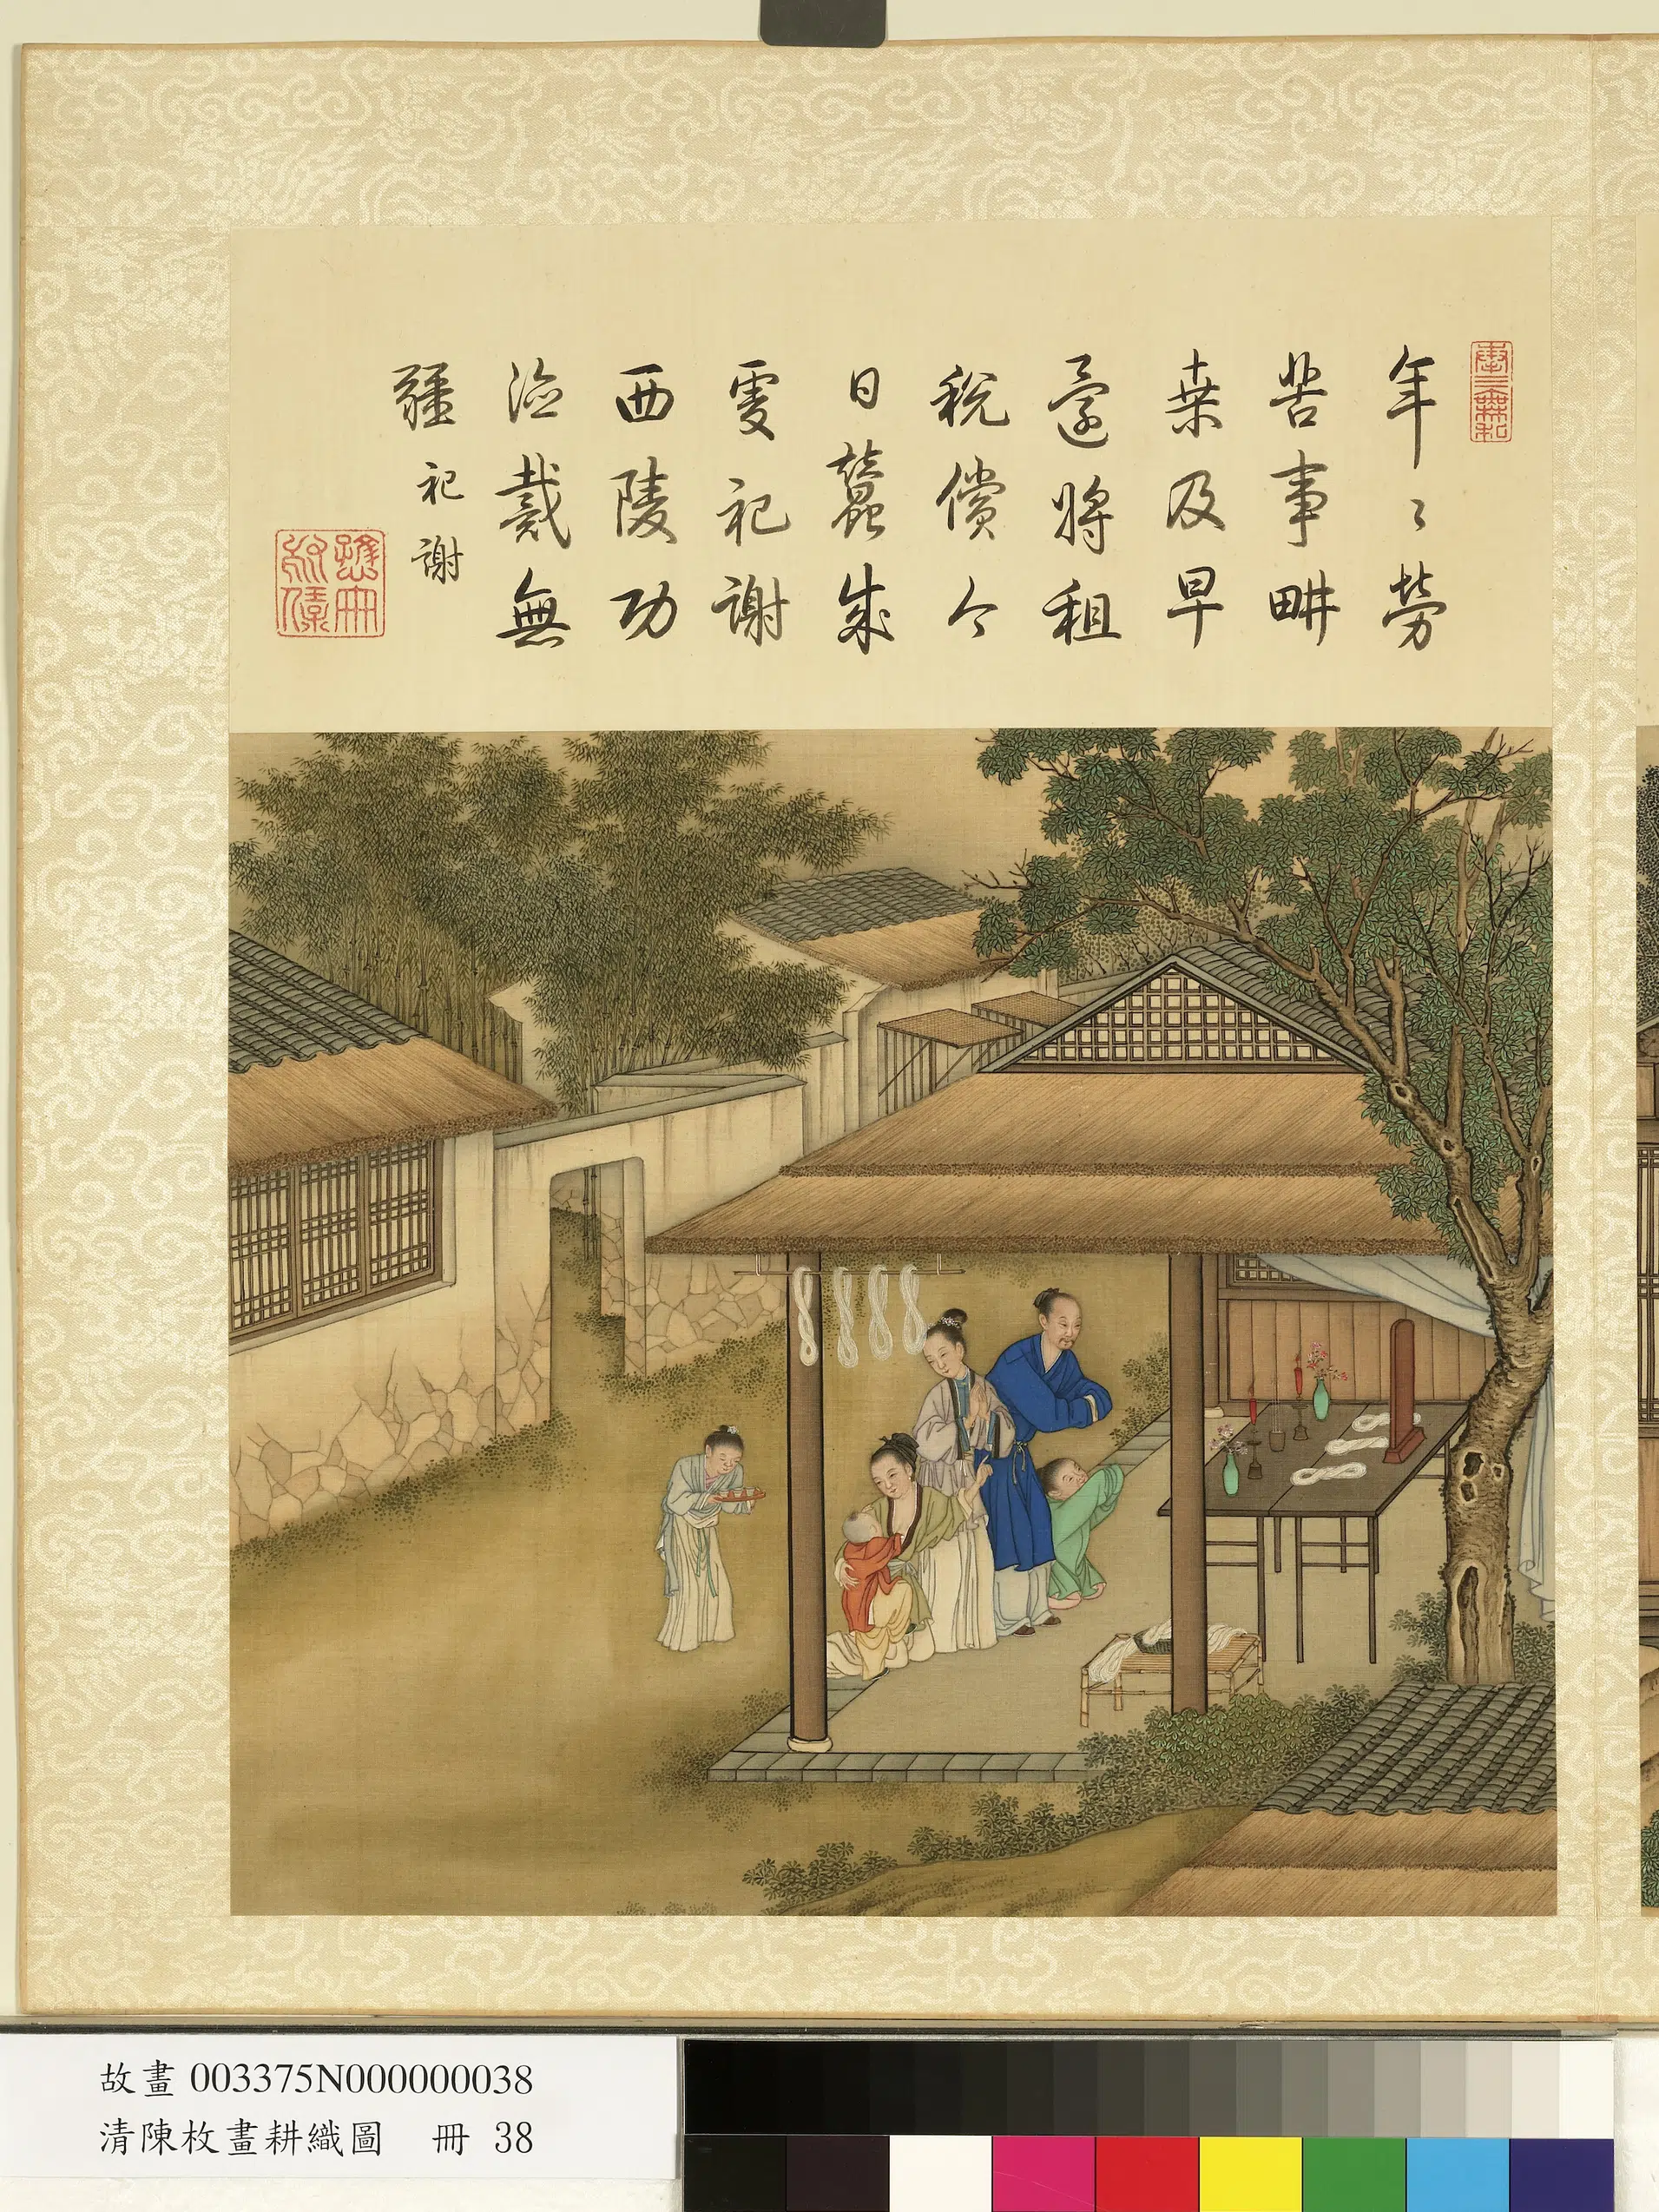 奉三無私
年〻勞
苦事畊
桒及早
還將租
稅償今
日蠶成
虔祀謝
西陵功
德戴無
疆 祀謝
故畫 003375N000000038
清陳枚畫耕織圖　冊 38